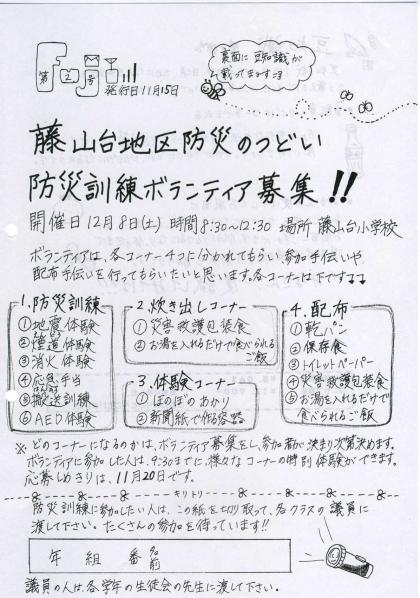 第2号
発行日11月15日
裏面に豆知識が
載ってます
藤山台地区防災のつどい
防災訓練ボランティア募集!!
開催日12月8日(土) 時間8:30~12:30 場所 藤山台小学校
ボランティアは、各コーナー4つに分かれてもらい、参加手伝いや
配布手伝いを行ってもらいたいと思います。各コーナーは下です↓↓
1.防災訓練
①地震体験
②煙道体験
③消火体験
④応急手当
⑤搬送訓練
⑥AED体験
2.炊き出しコーナー
①災害救護包装食
②お湯を入れるだけで食べられる
ご飯
3.体験コーナー
①ほのぼのあかり
②新聞紙で作る容器
4.配布
①乾パン
②保存食
③トイレットペーパー
④災害救護包装食
⑤お湯を入れるだけで
食べられるご飯
※どのコーナーになるのかは、ボランティア募集をし、参加者が決まり次第決めます。
ボランティアに参加した人は、9:30までに、様々なコーナーの特別体験ができます。
応募しめきりは、11月20日です。
キリトリ
防災訓練に参加したい人は、この紙を切り取って、各クラスの議員に
渡して下さい。たくさんの参加を待っています!!
年 組 番 名前
議員の人は、各学年の生徒会の先生に渡して下さい。